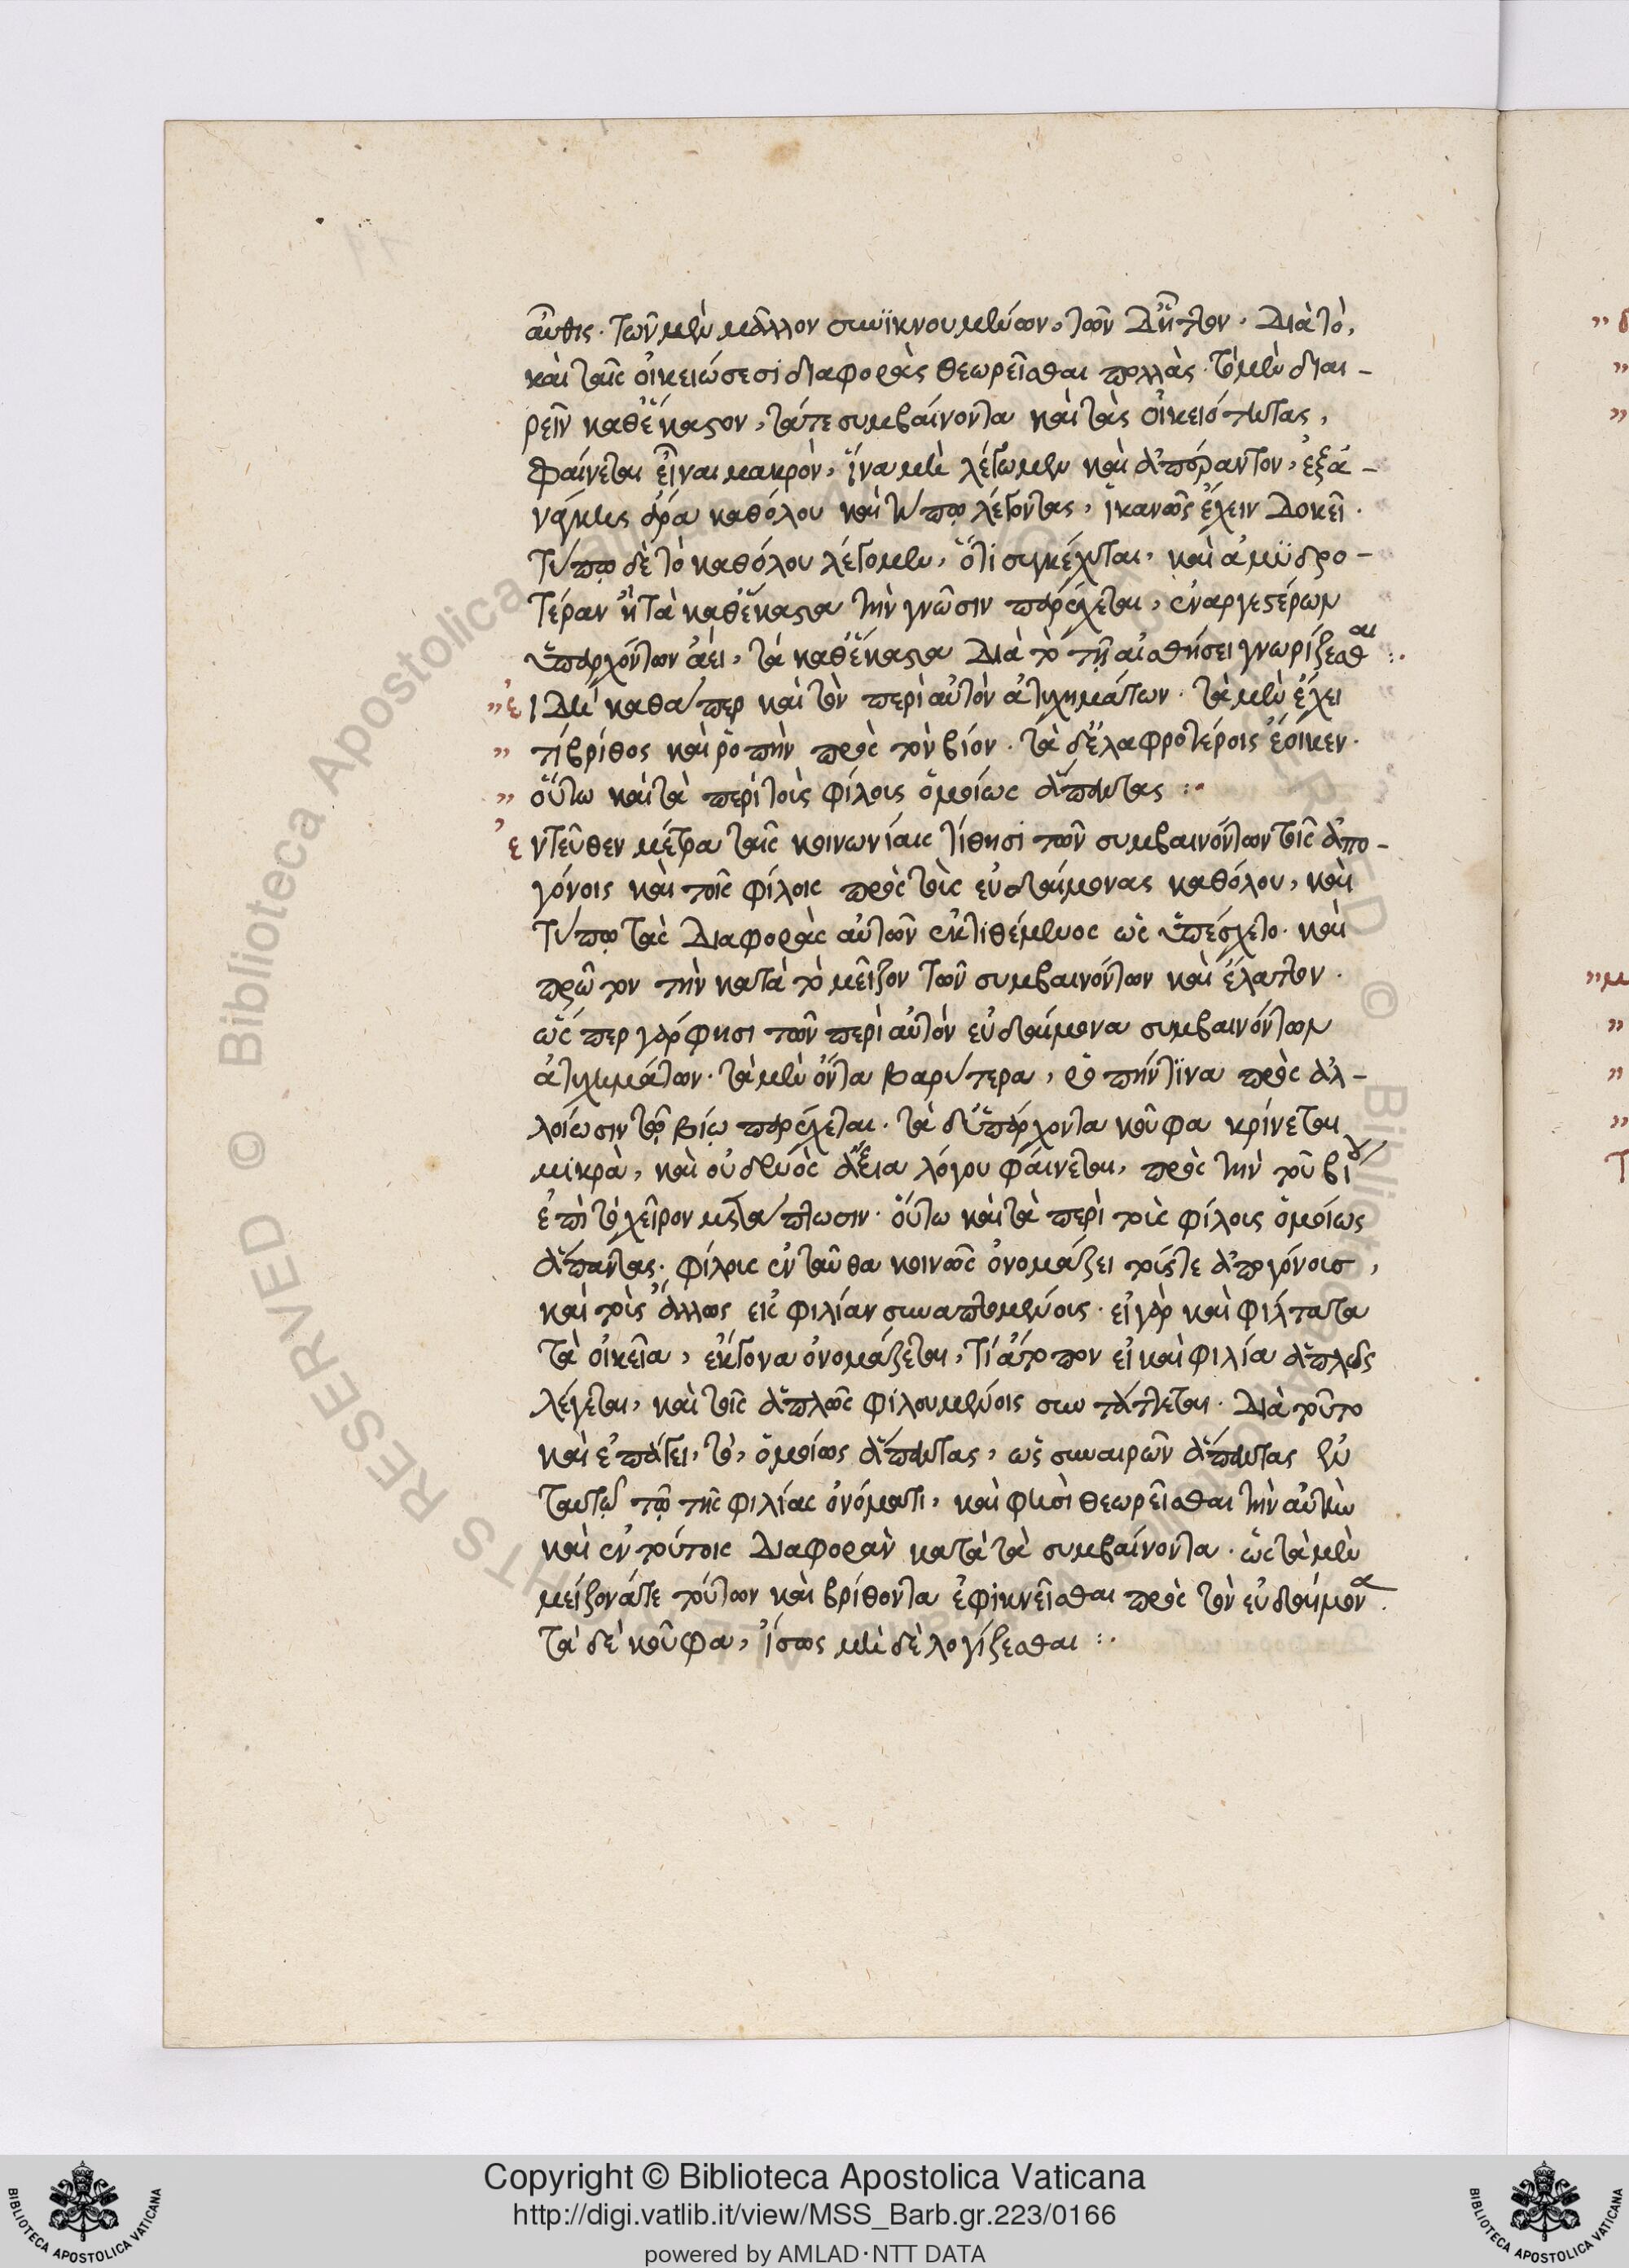 αὖθις. τῶν μὲν μᾶλλον συνϊκνουμένων, τῶν δ' ἧττον. διὰ τὸ,
καὶ ταῖς οἰκειώσεσι διαφορὰς θεωρεῖσθαι πολλὰς. τὸ μὲν διαι-
ρεῖν καθ' ἕκαστον, τά τε συμβαίνοντα καὶ τὰς οἰκειότητας,
φαίνεται εἶναι μακρὸν, ἵνα μὴ λέγωμεν καὶ ἀπέραντον, ἐξα-
νάγκης ἄρα καθόλου καὶ τύπῳ λέγοντας, ἱκανῶς ἔχειν δοκεῖ.
τύπῳ δὲ τὸ καθόλου λέγομεν, ὅτι συγκέχυται, καὶ ἀμϋδρο-
τέραν ἢ τὰ καθ' ἕκαστα τὴν γνῶσιν παρέχεται, ἐναργεστέρων
ὑπαρχόντων ἀεὶ, τὰ καθ' ἕκαστα διὰ τὸ τῇ αἰσθήσει γνωρίζεσθαι :.
" ἐι δὴ καθάπερ καὶ τὸν περὶ αὐτὸν ἀτυχημάτων. τὰ μὲν ἔχει
" τί βρίθος καὶ ῥοπὴν πρὸς τὸν βίον. τὰ δ' ἐλαφροτέροις ἔοικεν.
" οὕτω καὶ τὰ περὶ τοὺς φίλοις ὁμοίως ἅπαντας :.
ἐντεῦθεν μέτρα ταῖς κοινωνίαις τίθησι τῶν συμβαινόντων τοῖς ἀπο-
γόνοις καὶ τοῖς φίλοις πρὸς τοὺς εὐδαίμονας καθόλου, καὶ
τύπῳ τὰς διαφορὰς αὐτῶν ἐκτιθέμενος ὡς ὑπέσχετο. καὶ
πρῶτον τὴν κατὰ τὸ μεῖζον τῶν συμβαινόντων καὶ ἔλαττον.
ὥς περ γάρ φησι τῶν περὶ αὐτὸν εὐδαίμονα συμβαινόντων
ἀτυχημάτων. τὰ μὲν ὄντα βαρύτερα, ῥοπήν τϊνα πρὸς ἀλ-
λοίωσιν τῷ βίῳ παρέχεται. τὰ δ' ὑπάρχοντα κοῦφα κρίνεται
μικρὰ, καὶ οὐδενὸς ἄξια λόγου φαίνεται, πρὸς τὴν τοῦ βίου
ἐπὶ τὸ χεῖρον μετάπτωσιν. οὕτω καὶ τὰ περὶ τοὺς φίλοις ὁμοίως
ἅπαντας. φίλοις ἐνταῦθα κοινῶς ὀνομάζει τοὺς τε ἀπογόνοισ,
καὶ τοὺς ἄλλως εἰς φιλίαν συναπτομένοις. εἰ γὰρ καὶ φίλτατα
τὰ οἰκεῖα, ἔκγονα ὀνομάζεται, τί ἄτοπον εἰ καὶ φιλία ἁπλῶς
λέγεται, καὶ τοῖς ἁπλῶς φιλουμένοις συντάττεται. διὰ τοῦτο
καὶ ἐπάγει, τὸ, ὁμοίως ἅπαντας, ὡς συναιρῶν ἅπαντας ἐν
ταυτῷ τῷ τῆς φιλίας ὀνόματι, καὶ φησὶ θεωρεῖσθαι τὴν αὐτὴν
καὶ ἐν τούτοις διαφορὰν κατὰ τὰ συμβαίνοντα. ὡς τὰ μὲν
μείζονά τε τούτων καὶ βρίθοντα ἐφικνεῖσθαι πρὸς τὸν εὐδαίμονα.
τὰ δὲ κοῦφα, ἴσως μὴ δὲ λογίζεσθαι :.
Copyright © Biblioteca Apostolica Vaticana
http://digi.vatlib.it/view/MSS_Barb.gr.223/0166
powered by AMLAD·NTT DATA